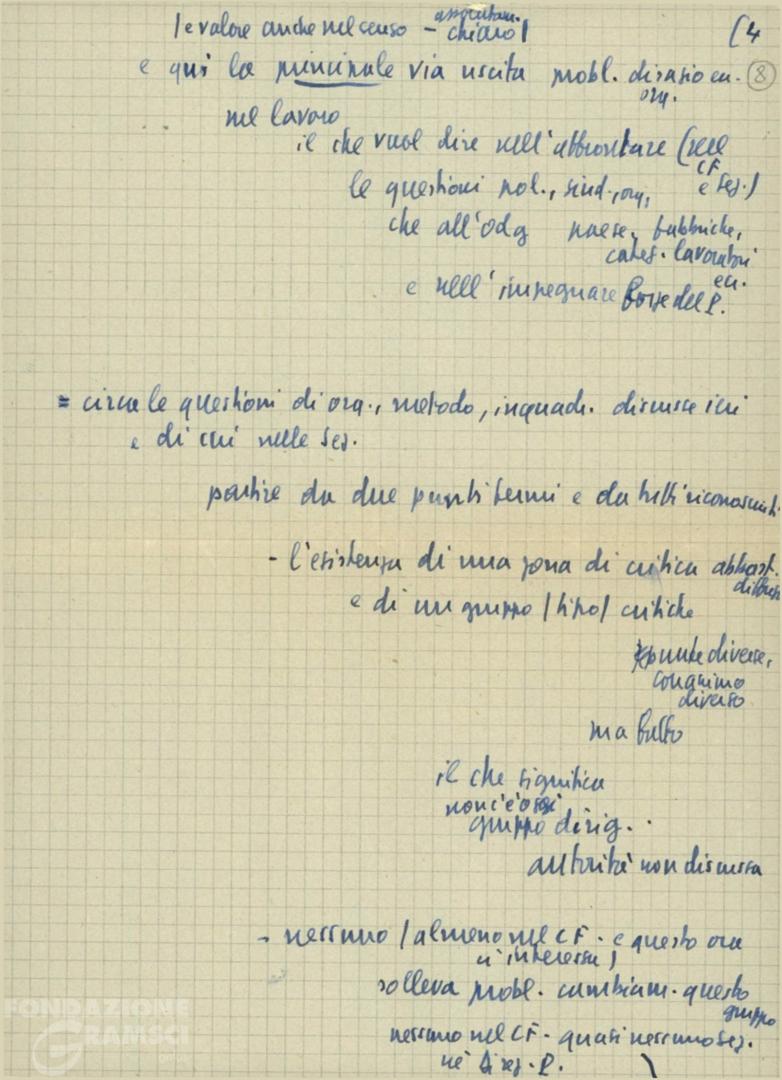 / e valore anche nel senso – assolutam. chiaro / [4
e qui la principale via uscita probl. disagio ecc. (8)
org.
nel lavoro
il che vuol dire nell'affrontare (nel
CF
le questioni pol., sind., org., e sez.)
che all'odg paese, fabbriche,
categ. lavoratori
ecc.
e nell'impegnare forze del P.
= circa le questioni di org., metodo, inquadr. discusse ieri
e di cui nelle sez.
partire da due punti fermi e da tutti riconosciuti
- l'esistenza di una zona di critica abbast.
diffusa
e di un gruppo / tipo / critiche
spunte diverse,
con animo
diverso
ma fatto
il che significa
non c'è oggi
gruppo dirig. ..
autorità non discussa
- nessuno / almeno nel CF - e questo ora
ci interessa /
solleva probl. cambiam. questo
gruppo
nessuno nel CF - quasi nessuno sez.
nè Direz. P.
FONDAZIONE
GRAMSCI